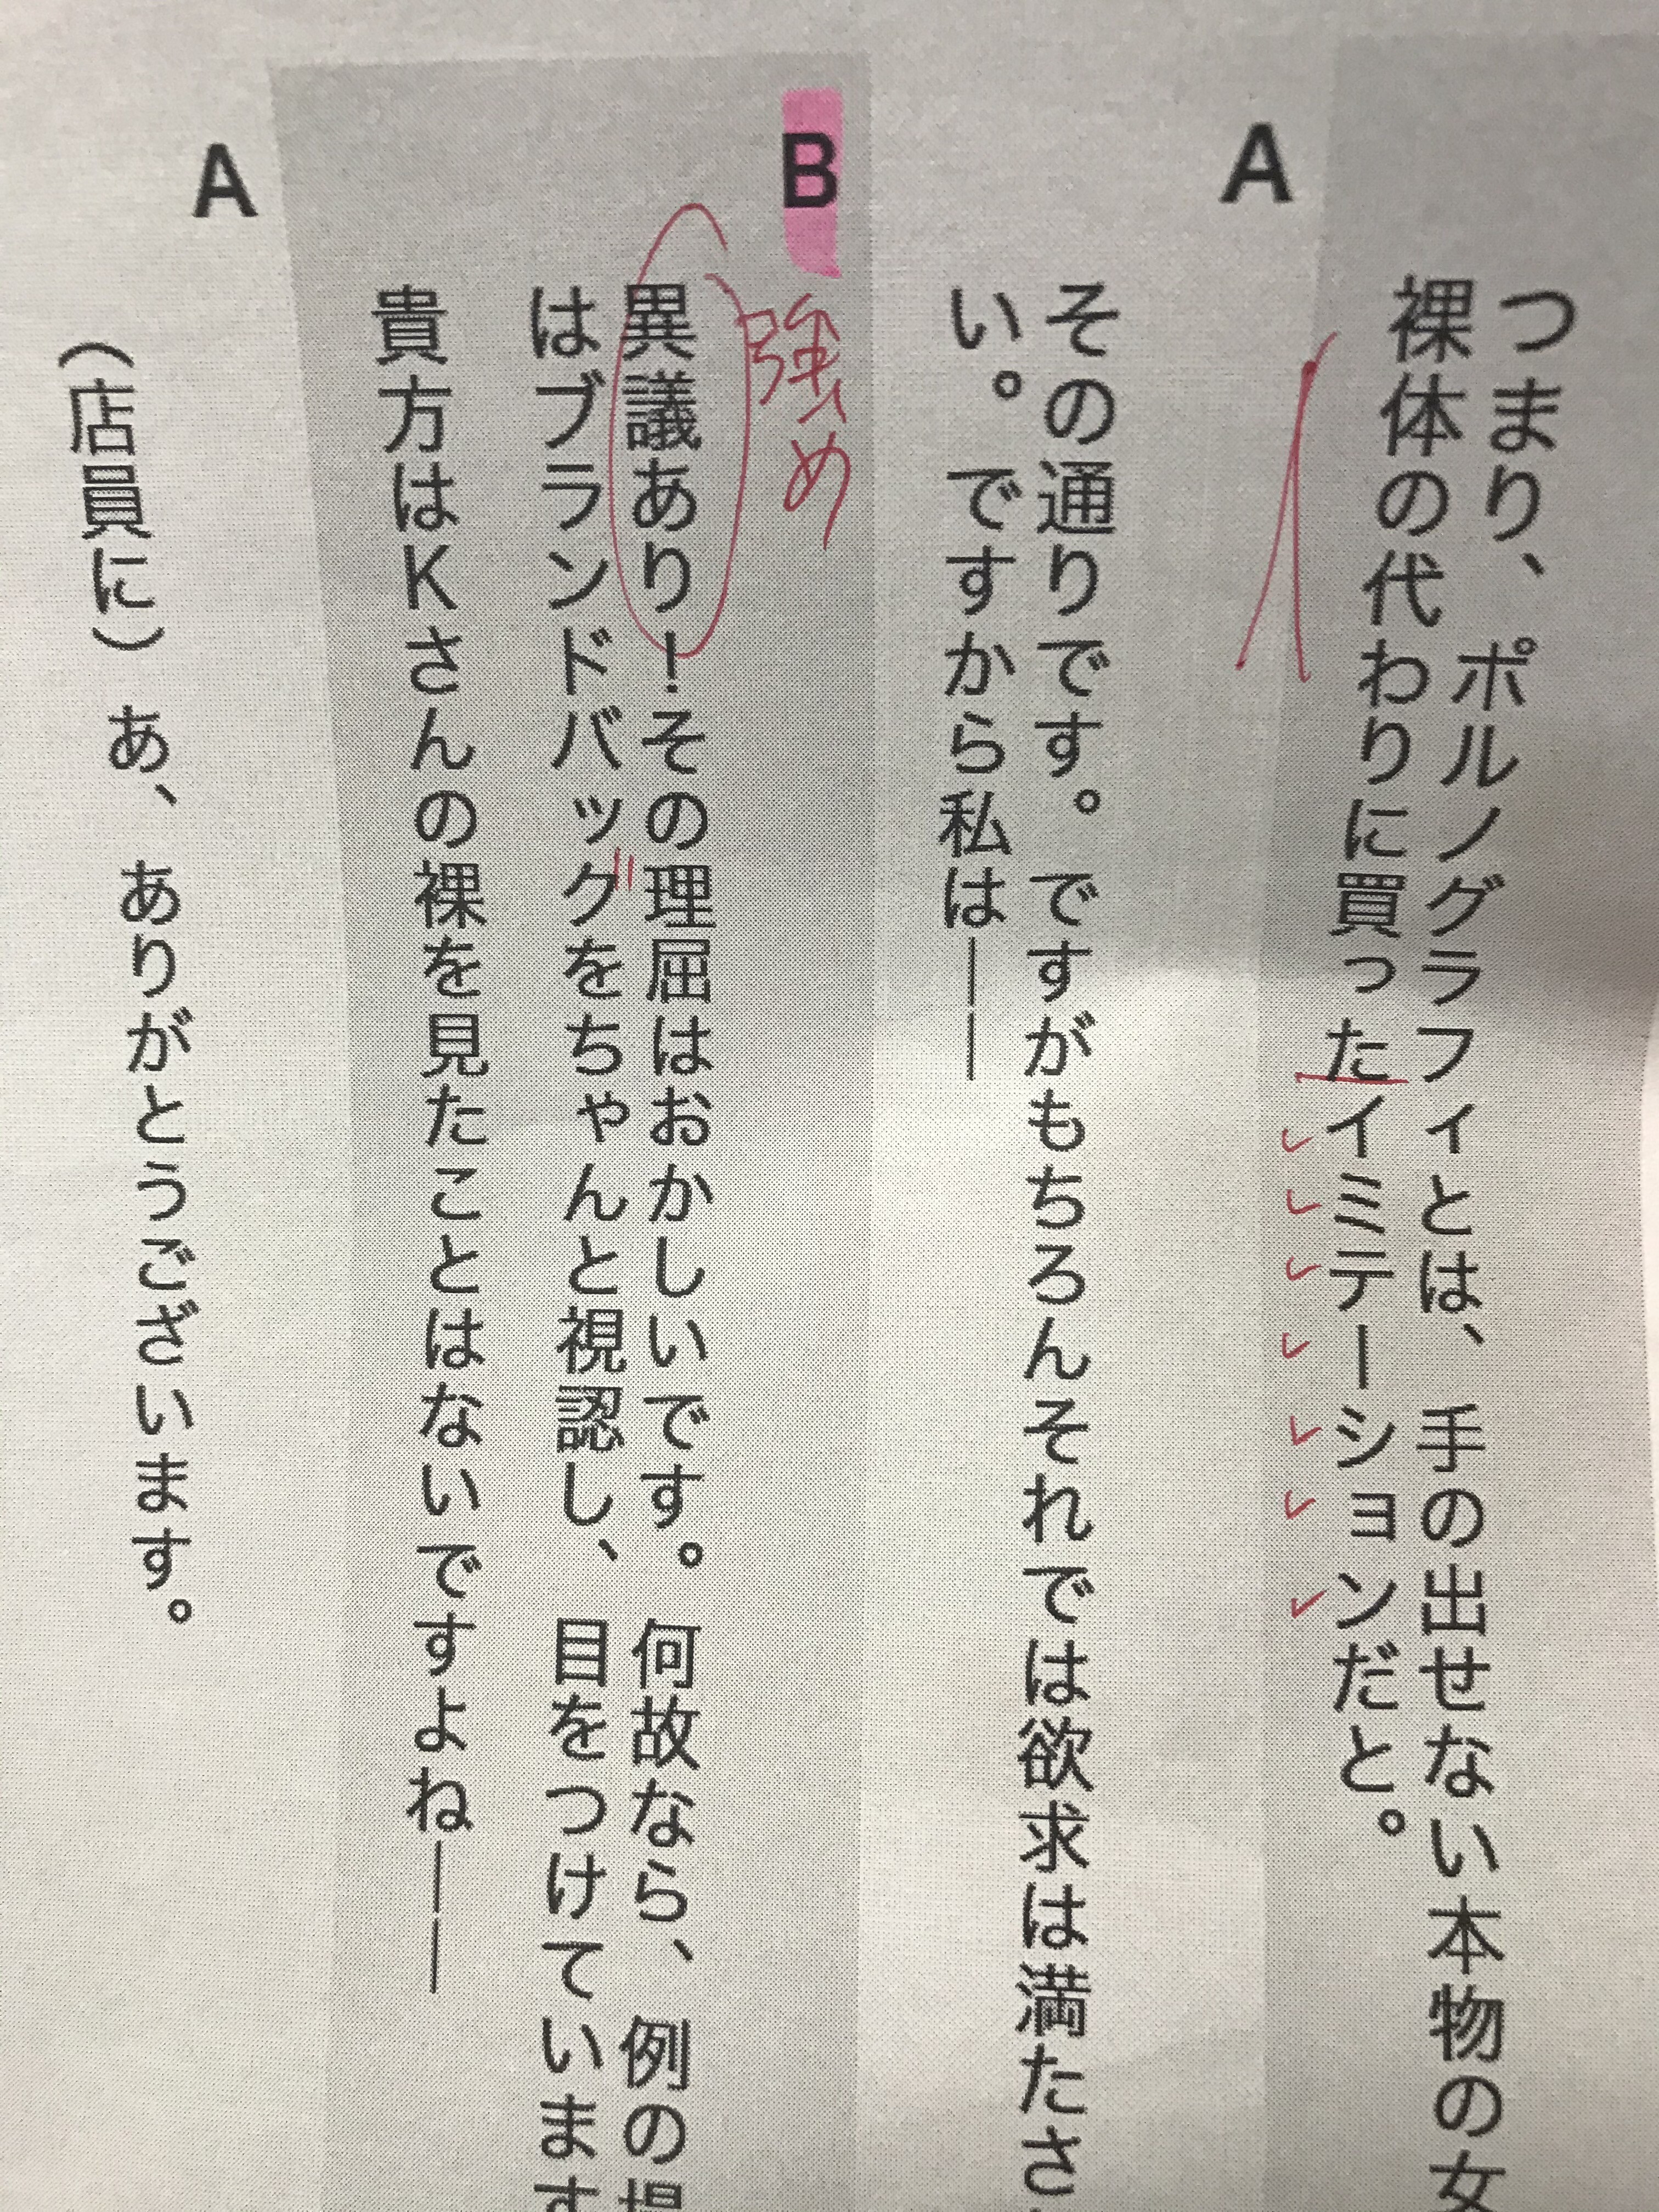 つまり、ポルノグラフィとは、手の出せない本物の女
裸体の代わりに買ったイミテーションだと。
A
その通りです。ですがもちろんそれでは欲求は満たさ
い。ですから私は――
B
強め
異議あり！その理屈はおかしいです。何故なら、例の
はブランドバックをちゃんと視認し、目をつけています
貴方はKさんの裸を見たことはないですよね――
A
（店員に）あ、ありがとうございます。